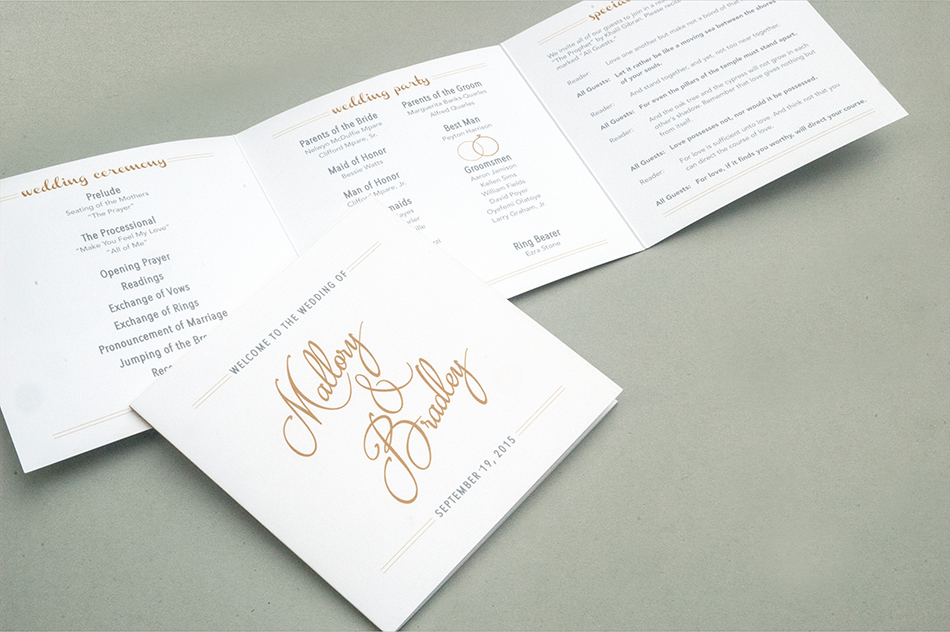 wedding ceremony
Prelude
Seating of the Mothers
"The Prayer"
The Processional
"Make You Feel My Love"
"All of Me"
Opening Prayer
Readings
Exchange of Vows
Exchange of Rings
Pronouncement of Marriage
Jumping of the
wedding party
Parents of the Bride
Nelwyn McDuffie Mpare
Clifford Mpare, Sr.
Maid of Honor
Bessie Watts
Man of Honor
Mpare, Jr.
Parents of the Groom
Marguerita Banks-Quarles
Alfred Quarles
Best Man
Peyton Harrison
Groomsmen
Aaron Jamison
Kailen Sims
William Fields
David Poyer
Oyefemi Olatoye
Larry Graham, Jr.
Ring Bearer
Ezra Stone
We invite all of our guests to join in a
"The Prophet" by Khalil Gibran. Please recite
marked "All Guests."
Reader: Love one another but make not a bond of
All Guests: Let it rather be like a moving sea between the shores
of your souls.
Reader: And stand together, and yet, not too near together.
All Guests: For even the pillars of the temple must stand apart.
Reader: And the oak tree and the cypress will not grow in each
other's shadow. Remember that love gives nothing but
from itself.
All Guests: Love possesses not, nor would it be possessed.
Reader: For love is sufficient unto love. And think not that you
can direct the course of love.
All Guests: For love, if it finds you worthy, will direct your course.
WELCOME TO THE WEDDING OF
Mallory
&
Bradley
SEPTEMBER 19, 2015